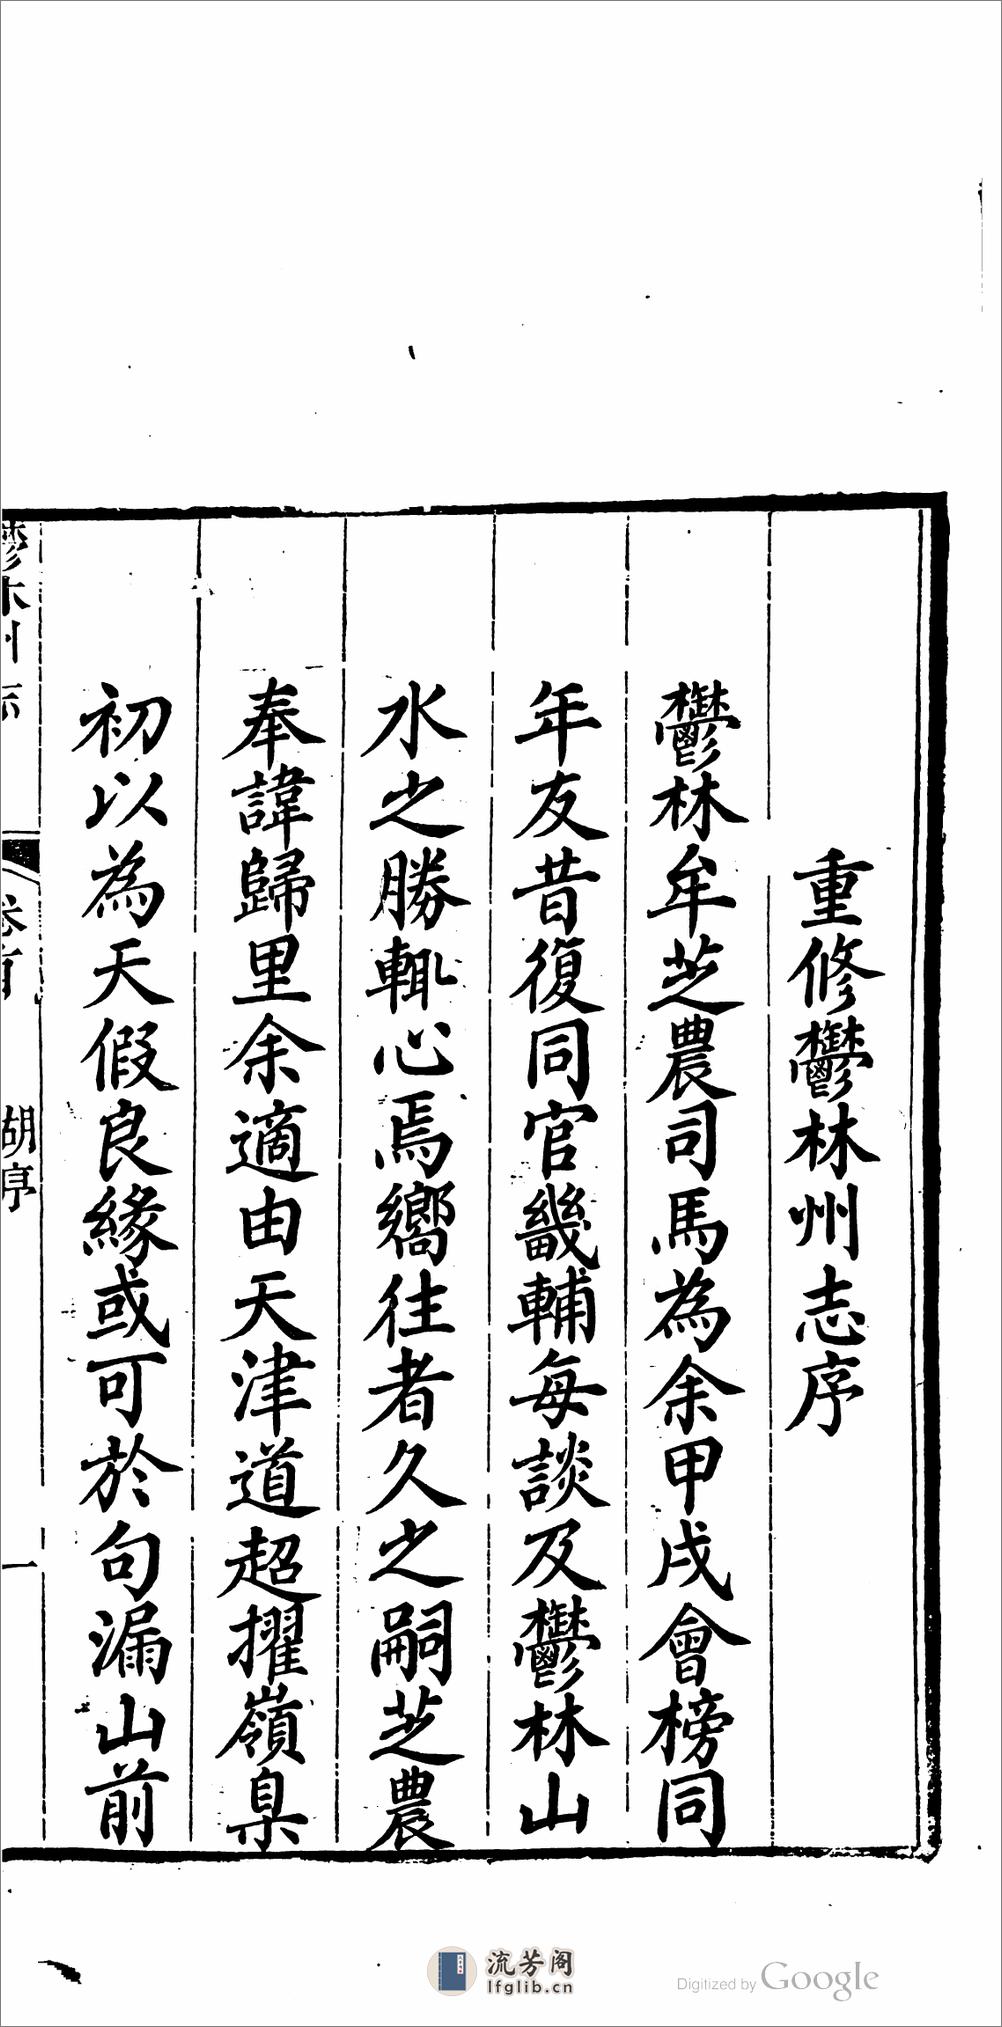 重修鬱林州志序
鬱林牟芝農司馬為余甲戌會榜同
年友昔復同官畿輔每談及鬱林山
水之勝輒心焉嚮往者久之嗣芝農
奉諱歸里余適由天津道超擢嶺臬
初以為天假良緣或可於句漏山前
鬱林州志
卷首
胡序
一
流芳阁
lfglib.cn
Digitized by Google